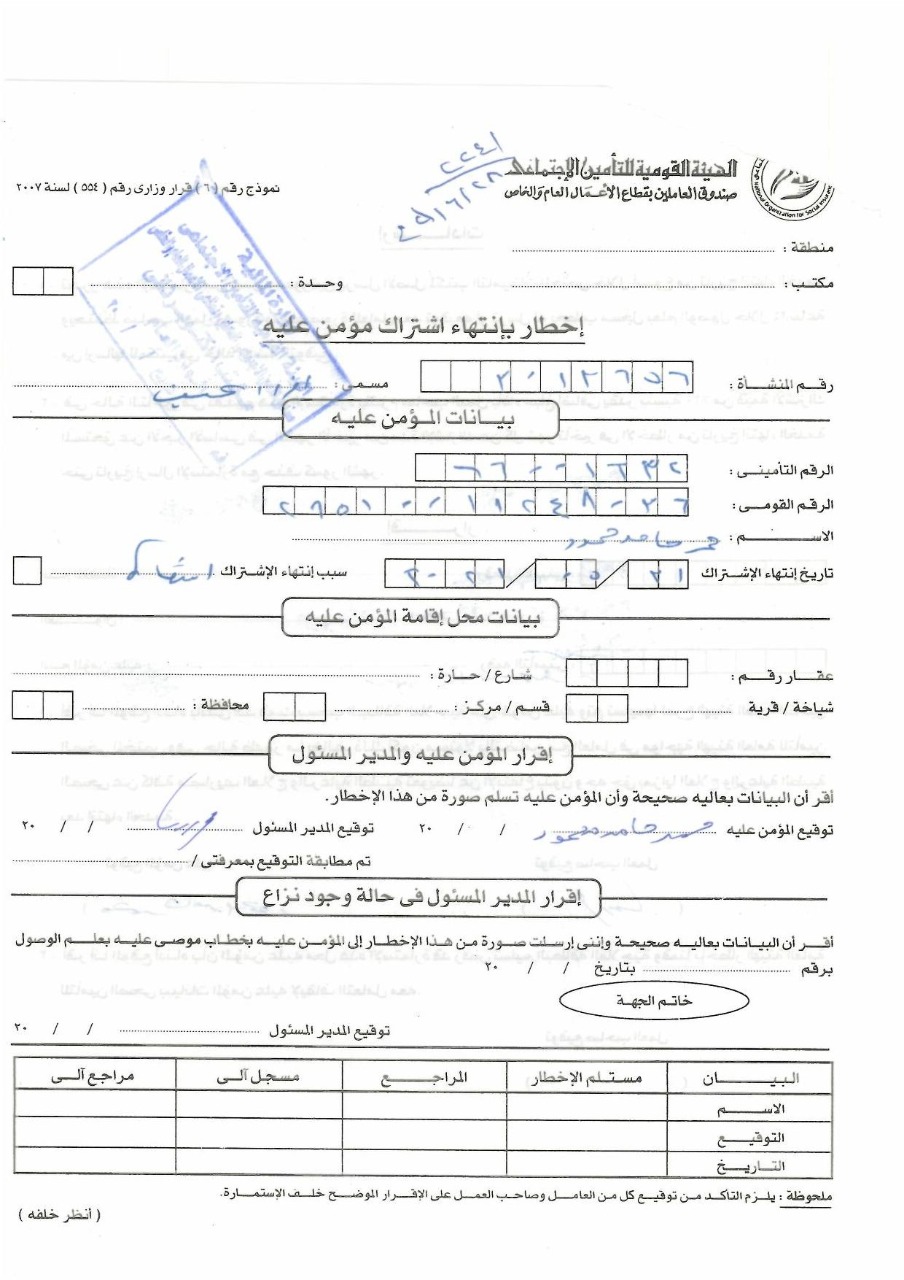 الهيئة القومية للتأمين الإجتماعى
صندوق العاملين بقطاع الأعمال العام والخاص
National Organization for Social Insurance
نموذج رقم (٦) قرار وزارى رقم (٥٥٤) لسنة ٢٠٠٧
٢٢٤١
منطقة :
مكتب : وحدة :
إخطار بإنتهاء اشتراك مؤمن عليه
رقم المنشأة : ٢٠١٢٦٥٦ مسمى :
بيانات المؤمن عليه
الرقم التأمينى : ٦٦٠٠١٦٣٢
الرقم القومى : ٢٩٥١٠٠١١٢٤٨٠٢٦
الاسم : حامد محمود
تاريخ إنتهاء الإشتراك ٣١ / ٠٥ / ٢٠٢١ سبب إنتهاء الإشتراك
بيانات محل إقامة المؤمن عليه
عقار رقم : شارع / حارة :
شياخة / قرية قسم / مركز : محافظة :
إقرار المؤمن عليه والمدير المسئول
أقر أن البيانات بعاليه صحيحة وأن المؤمن عليه تسلم صورة من هذا الإخطار.
توقيع المؤمن عليه محمد حامد محمود / / ٢٠ توقيع المدير المسئول / / ٢٠
تم مطابقة التوقيع بمعرفتى /
إقرار المدير المسئول فى حالة وجود نزاع
أقر أن البيانات بعاليه صحيحة وإننى إرسلت صورة من هذا الإخطار إلى المؤمن عليه بخطاب موصى عليه بعلم الوصول
برقم بتاريخ / / ٢٠
خاتم الجهة
توقيع المدير المسئول / / ٢٠
البيان مستلم الإخطار المراجع مسجل آلى مراجع آلى
الاسم
التوقيع
التاريخ
ملحوظة : يلزم التأكد من توقيع كل من العامل وصاحب العمل على الإقرار الموضح خلف الإستمارة.
( أنظر خلفه )